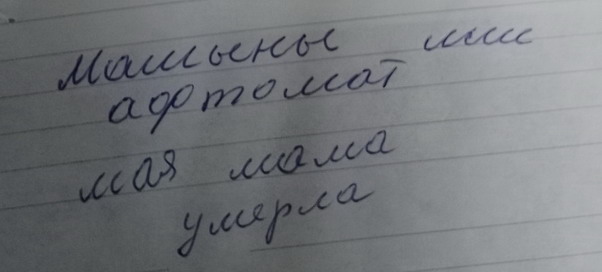 Машыны
афтомат
мая мама
умерла